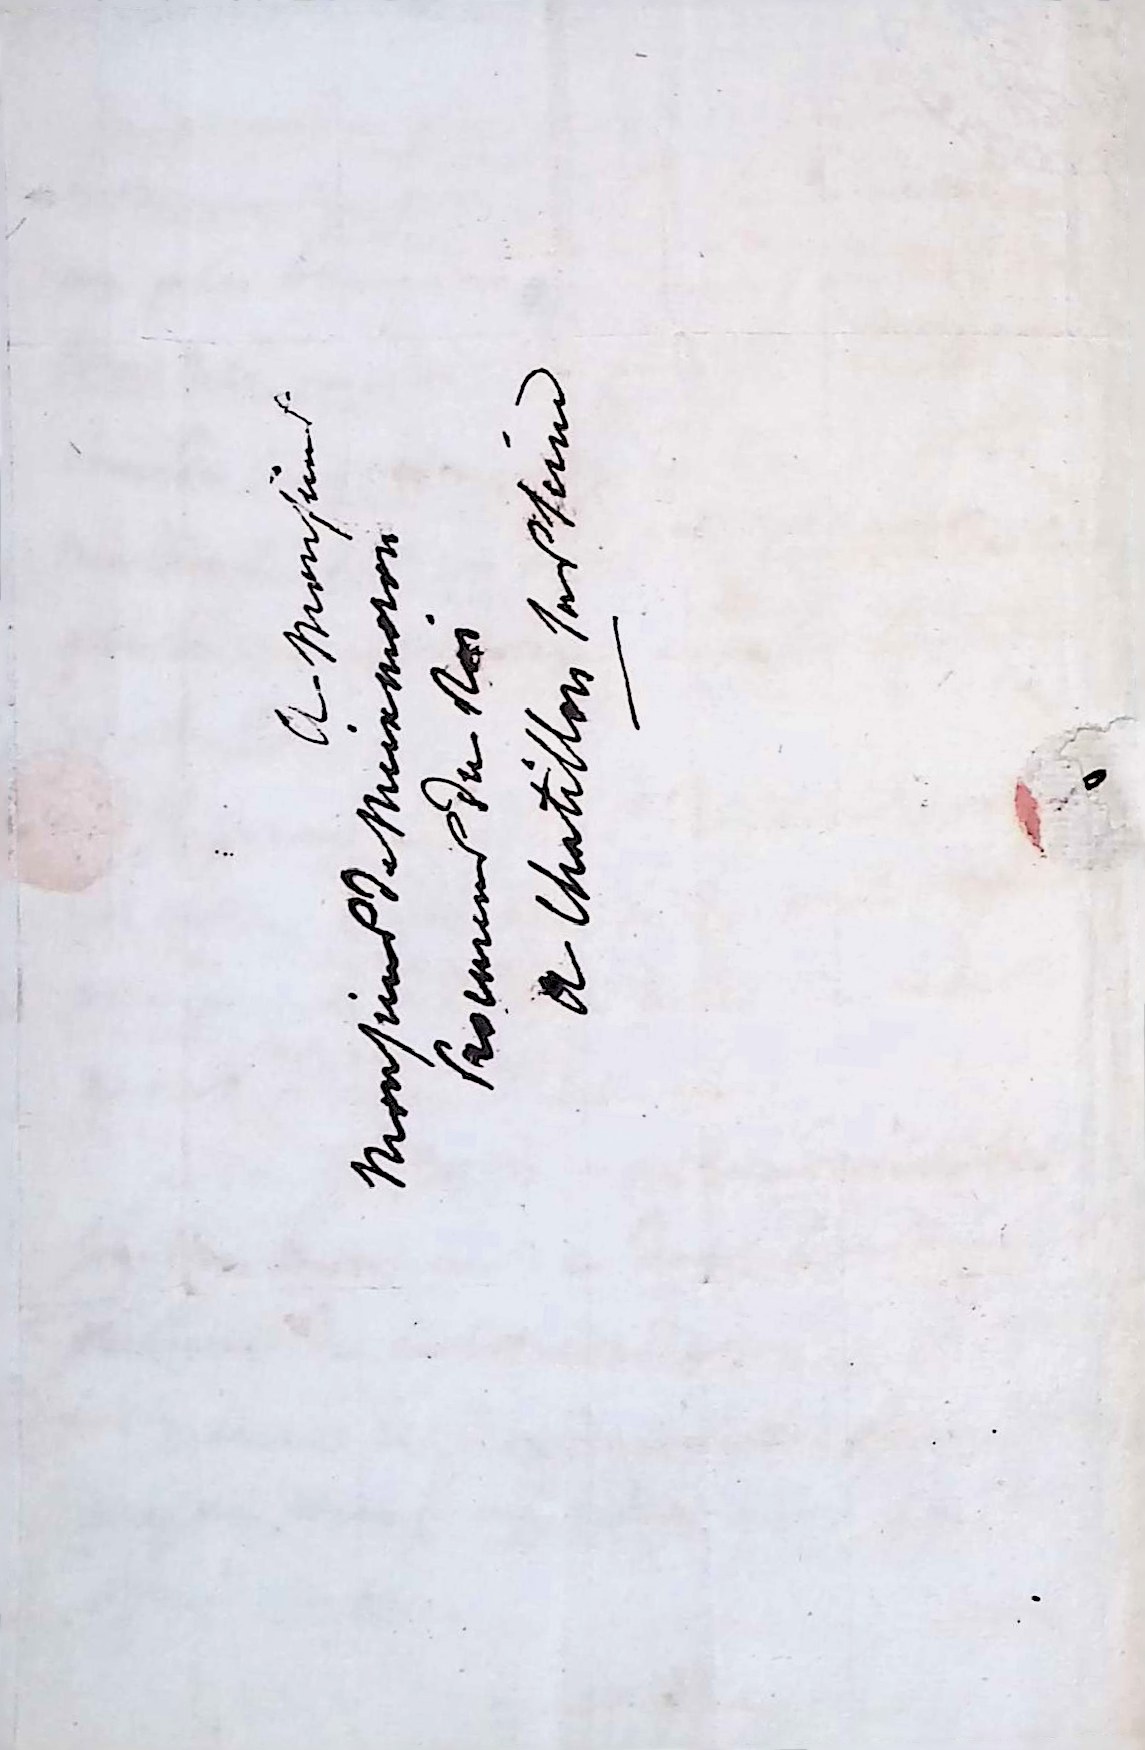 A Monsieur
Monsieur De Meixmoron
Procureur Du Roi
a Chatillon sur Seine